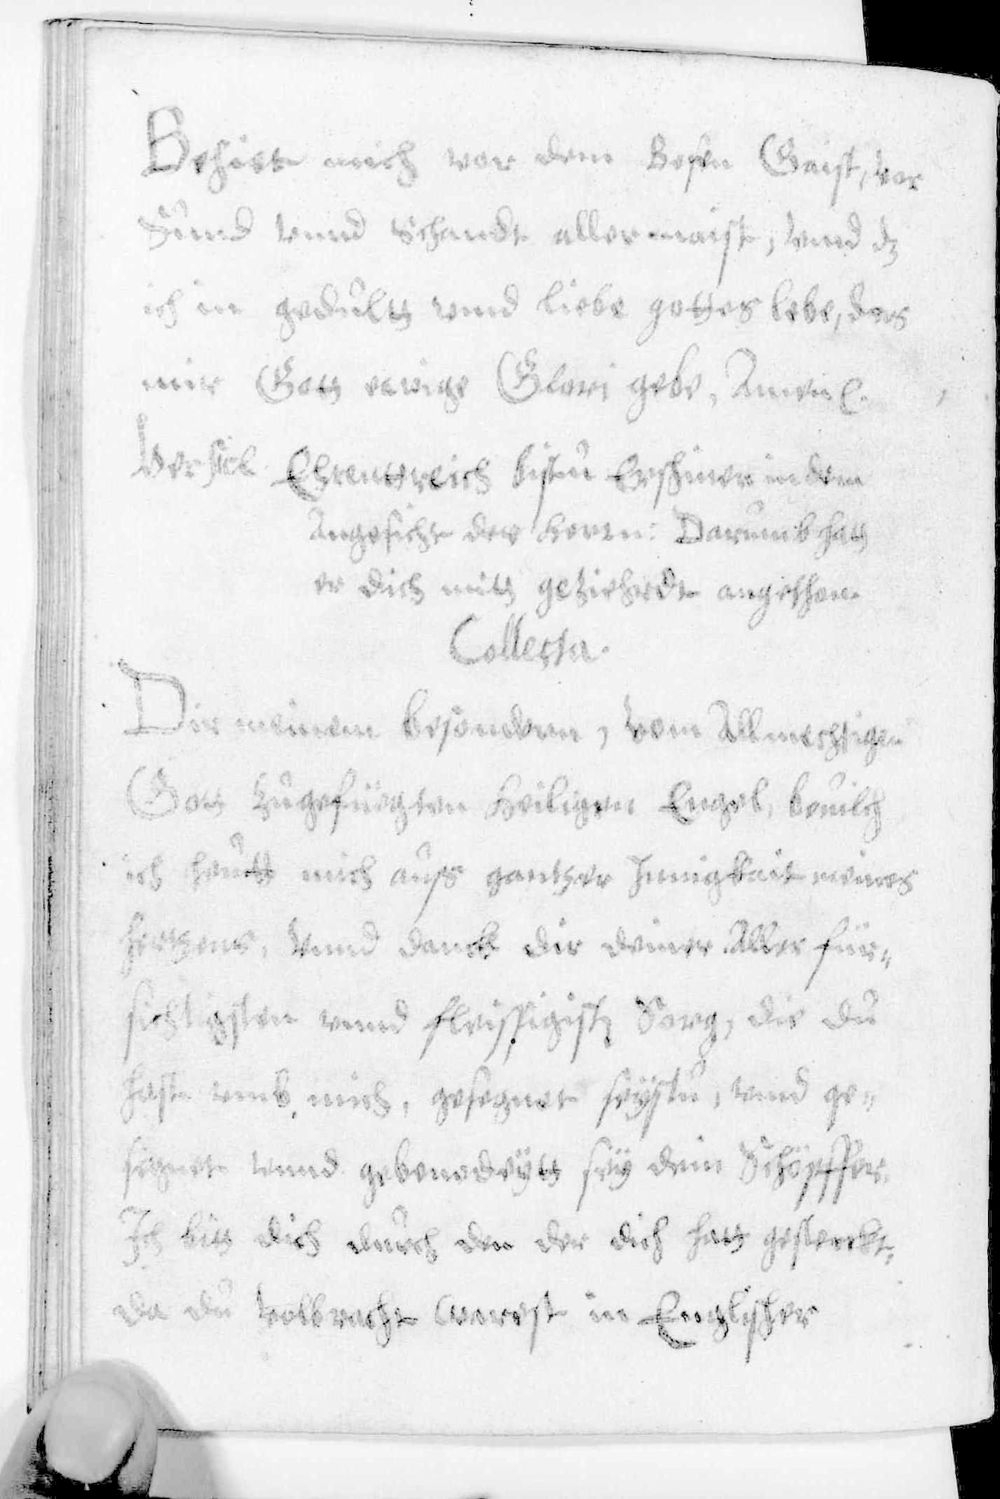 Behiett mich vor dem Bosen Gaist, vor
Sünd vnnd Schandt aller maist, vnnd dz
ich in gedültt vnnd liebe gottes lebe, das
mir Gott ewige Glori gebe, Amen
Versicl Ehrenttreich bistü in dem
Angesicht des Herrn: Darumb hatt
er dich mitt geziehrdt angesehen
Collecta.
Dir meinem besondern, vom Allmechtigen
Gott zugefüegten Heiligen Engel, beuilch
ich heütt mich auss gantzer Innigkait meines
hertzens, Vnnd danck dir deiner Aller für-
sichtigsten vnnd fleissigist Sorg, die dü
hast vmb mich, gesegnet seystu, vnnd ge-
segnet vnnd gebenedeytt sey dein Schöpffer.
Ich bitt dich dürch den der dich hatt gesterckt,
da dü volbracht warest in Englischer